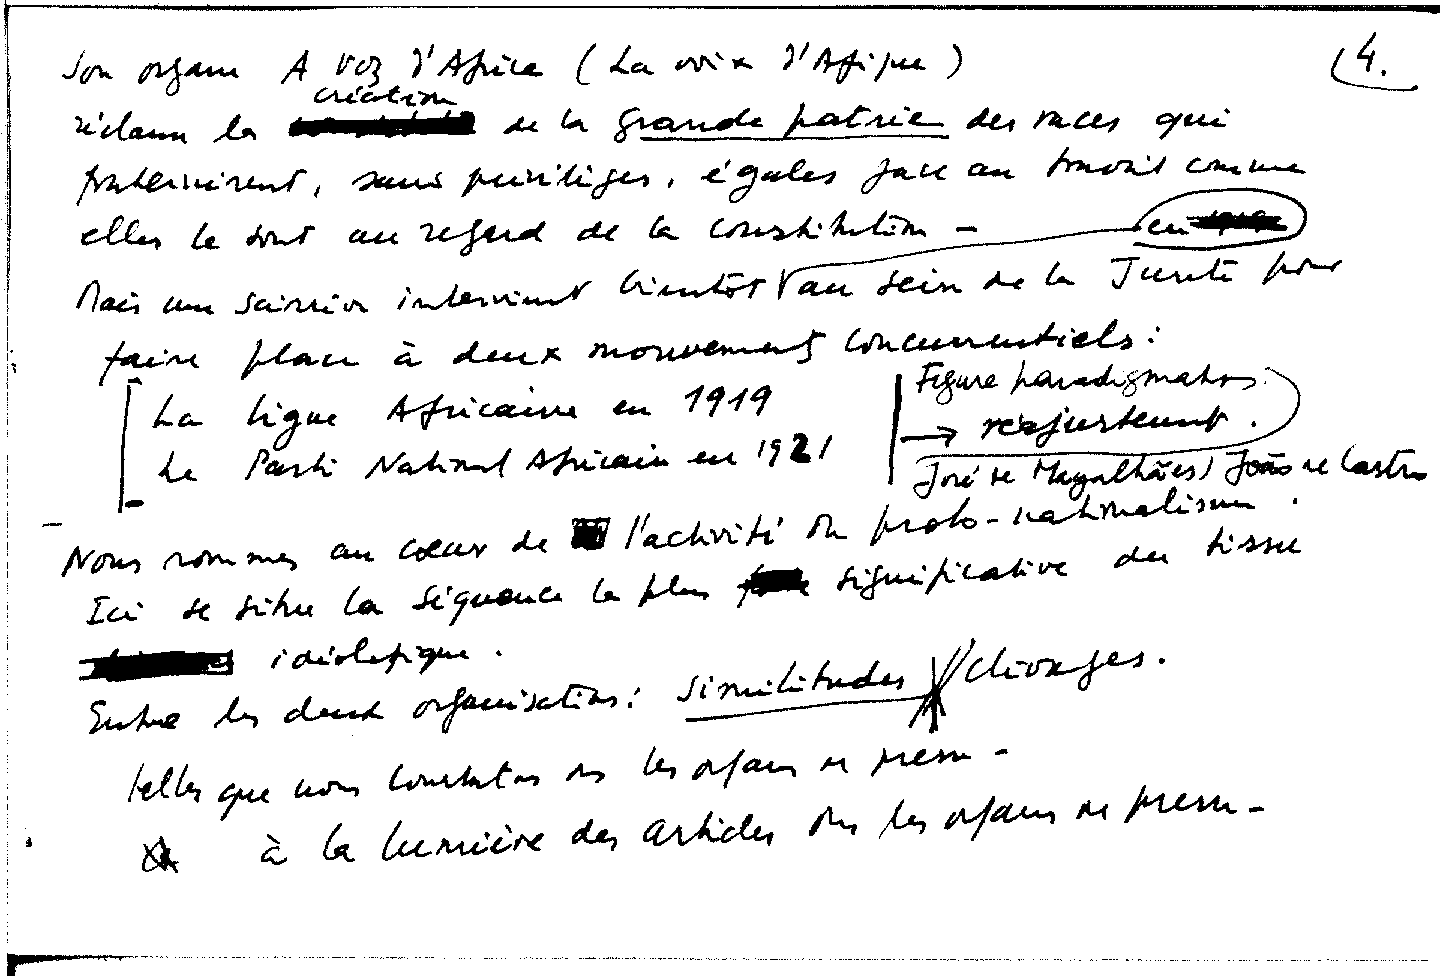 4.
Son organe A Voz d'Africa (La voix d'Afrique)
création
réclame la de la grande patrie des races qui
fraternisent, sans privilèges, égales face au travail comme
elles le sont au regard de la constitution -
en
Mais une scission intervient bientôt au sein de la Junte pour
faire place à deux mouvements concurrentiels :
La Ligue Africaine en 1919
Le Parti National Africain en 1921
Figure paradigmatique :
→ réajustement.
José de Magalhães / João de Castro
Nous sommes au cœur de l'activité du proto-nationalisme.
Ici se situe la séquence la plus significative du tissu
idéologique.
Entre les deux organisations : similitudes // clivages.
telles que nous constatons ds les organes de presse -
à la lumière des articles ds les organes de presse -